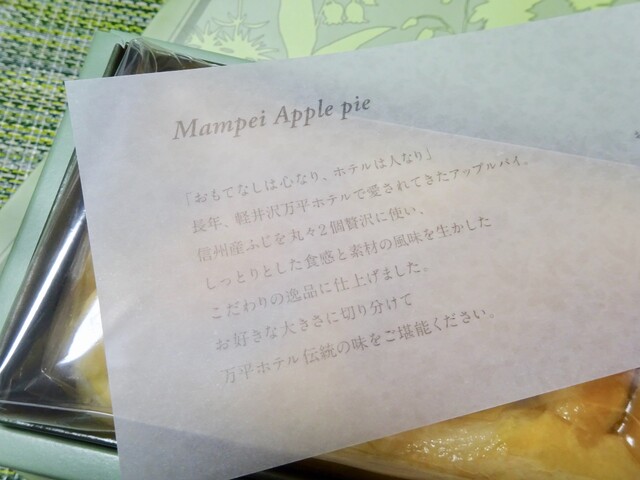 Mampei Apple pie
「おもてなしは心なり、ホテルは人なり」
長年、軽井沢万平ホテルで愛されてきたアップルパイ。
信州産ふじを丸々2個贅沢に使い、
しっとりとした食感と素材の風味を生かした
こだわりの逸品に仕上げました。
お好きな大きさに切り分けて
万平ホテル伝統の味をご堪能ください。